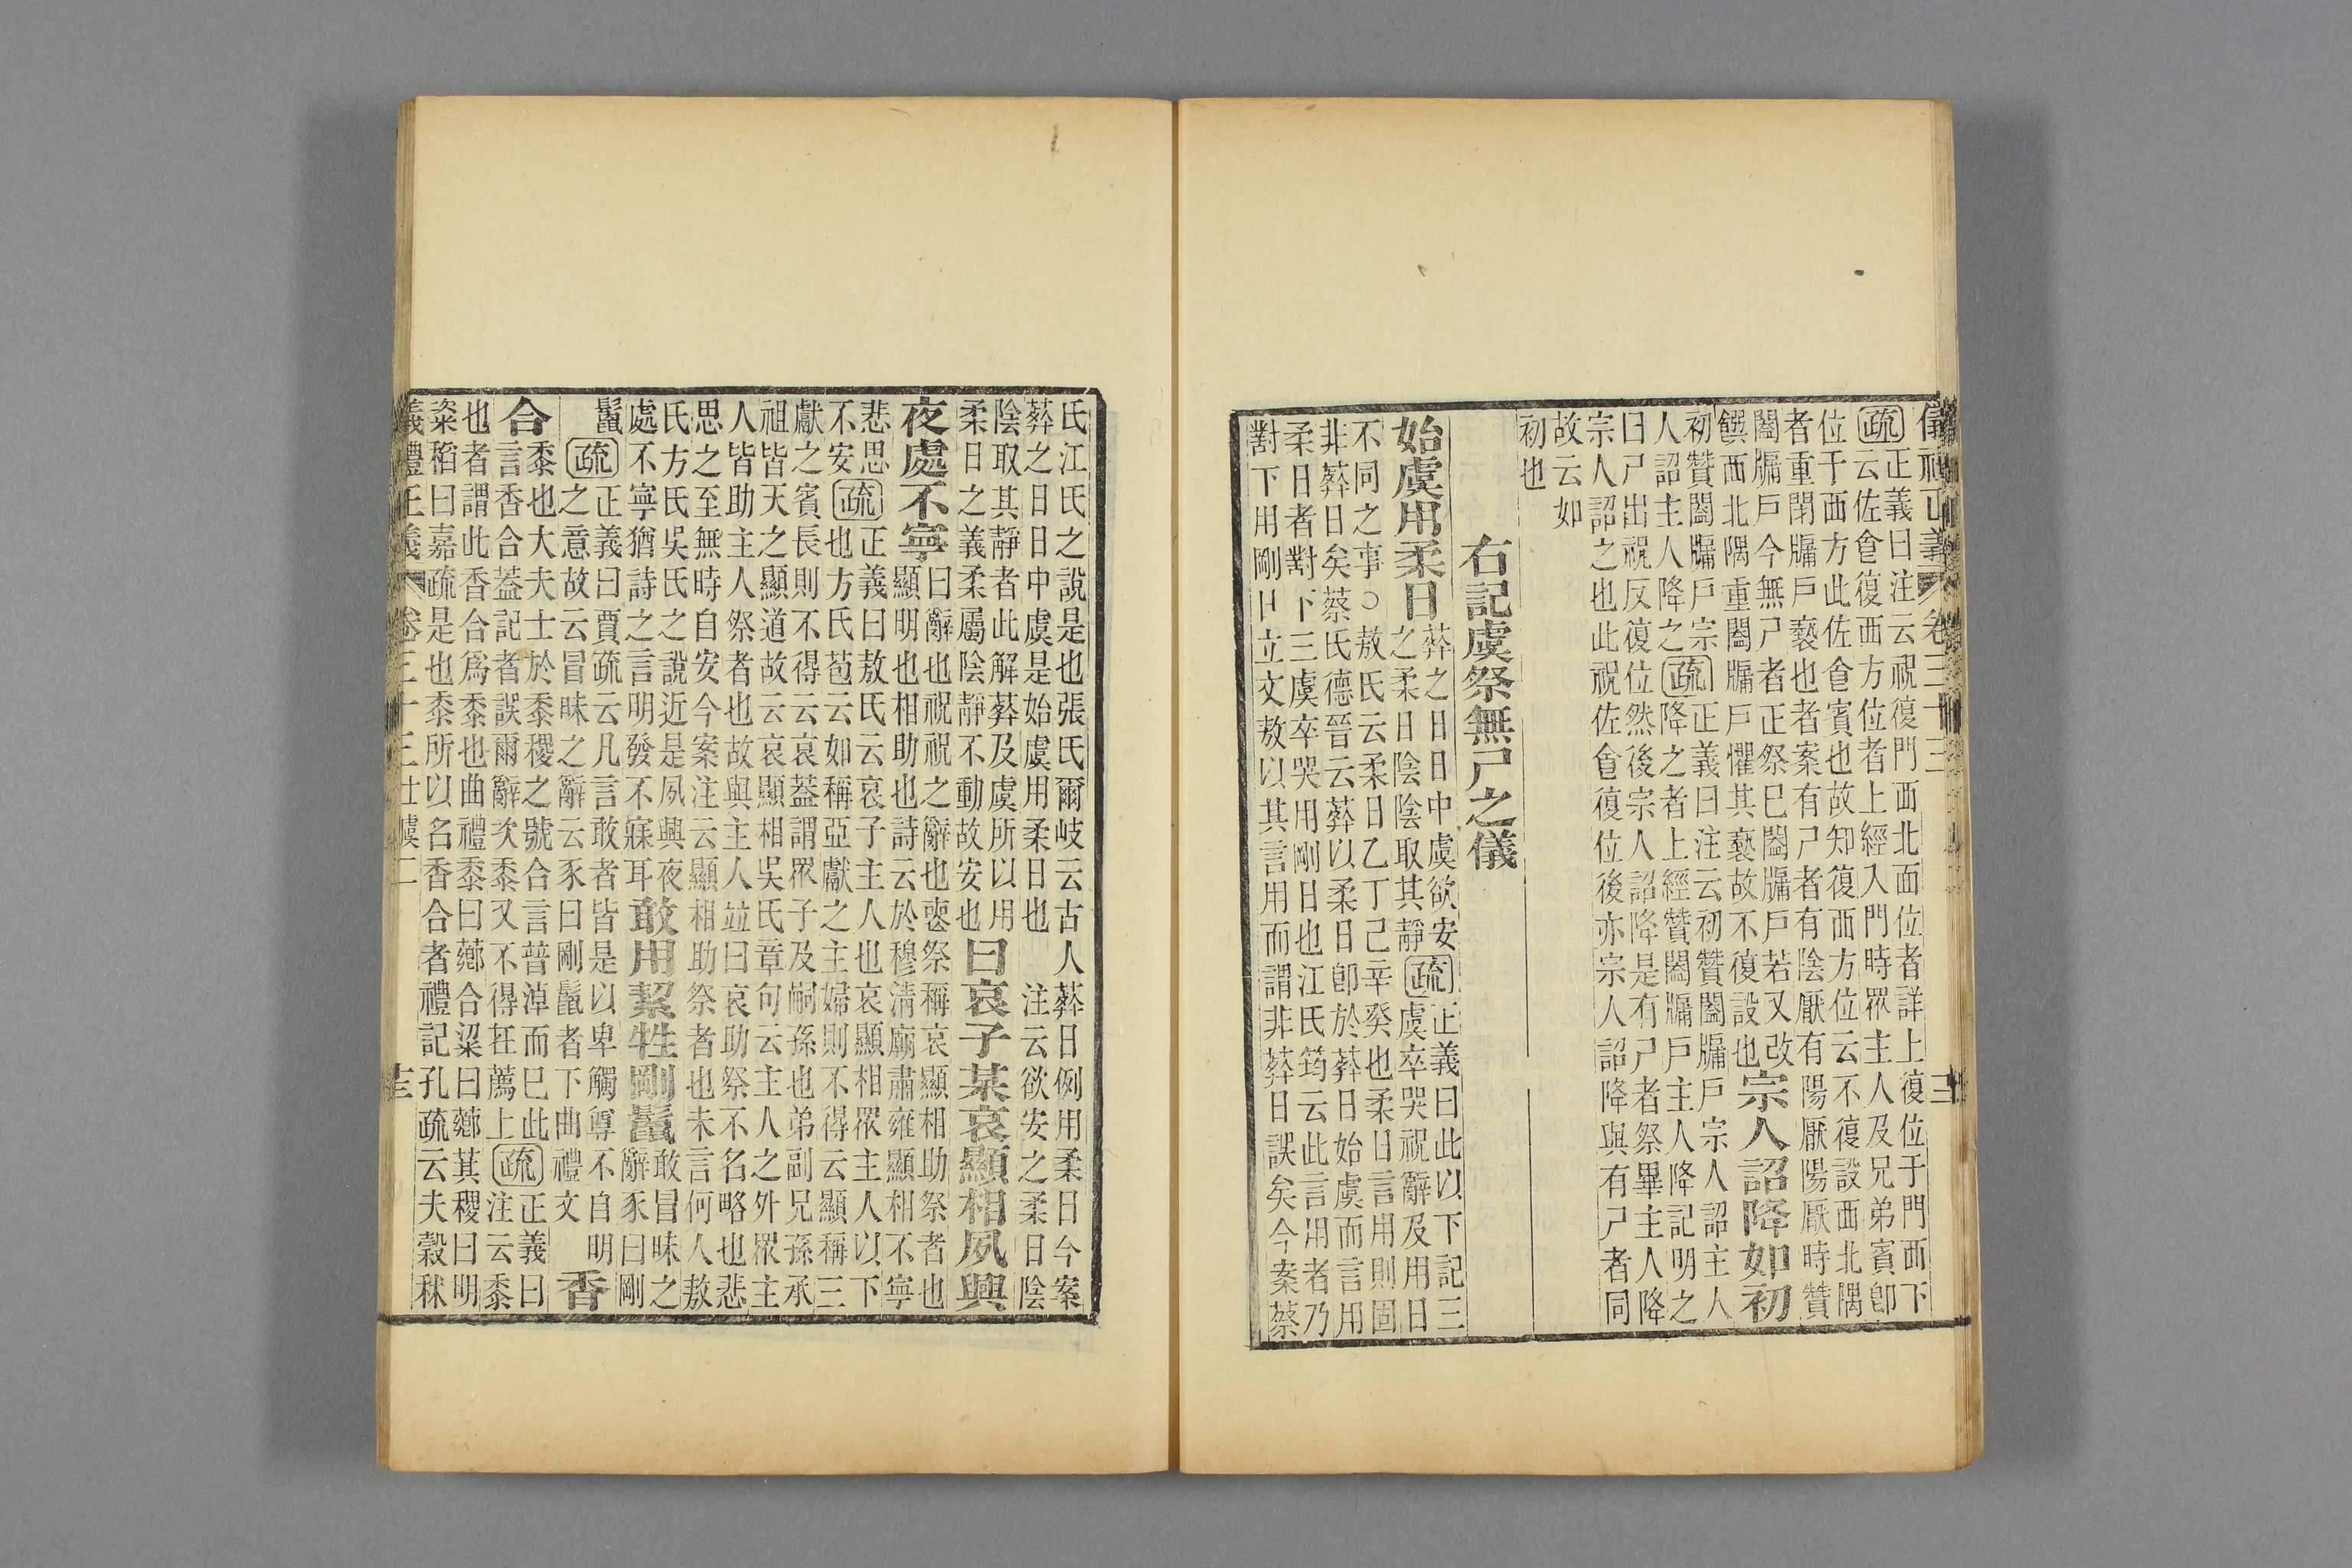 儀禮正義 卷三十三
疏 正義曰注云祝復門西北面位者詳上復位于門西下
云佐食復西方位者上經入門時眾主人及兄弟賓即
位于西方此佐食賓也故知復西方位云不復設西北隅
者重閉牖戶褻也者案有尸者有陰厭有陽厭陽厭時贊
闔牖戶今無尸者正祭已闔牖戶若又改
饌西北隅重闔牖戶懼其褻故不復設也
宗人詔降如初
初贊闔牖戶宗
人詔主人降之
疏 正義曰注云初贊闔牖戶宗人詔主人
降之者上經贊闔牖戶主人降記明之
曰尸出祝反復位然後宗人詔降是有尸者祭畢主人降
宗人詔之也此祝佐食復位後亦宗人詔降與有尸者同
故云如
初也
右記虞祭無尸之儀
始虞用柔日
葬之日日中虞欲安
之柔日陰陰取其靜
疏 正義曰此以下記三
虞卒哭祝辭及用日
不同之事○敖氏云柔日乙丁己辛癸也柔日言用則固
非葬日矣蔡氏德晉云葬以柔日即於葬日始虞而言用
柔日者對下三虞卒哭用剛日也江氏筠云此言用者乃
對下用剛日立文敖以其言用而謂非葬日誤矣今案蔡
氏江氏之說是也張氏爾岐云古人葬日例用柔日今案
葬之日日中虞是始虞用柔日也 注云欲安之柔日陰
陰取其靜者此解葬及虞所以用
柔日之義柔屬陰靜不動故安也
曰哀子某哀顯相夙興
夜處不寧
曰辭也祝祝之辭也喪祭稱哀顯相助祭者也
顯明也相助也詩云於穆清廟肅雍顯相不寧
悲思
不安
疏 正義曰敖氏云哀子主人也哀顯相眾主人以下
也方氏苞云如稱亞獻之主婦則不得云顯稱三
獻之賓長則不得云哀蓋謂眾子及嗣孫也弟副兄孫承
祖皆天之顯道故云哀顯相吳氏章句云主人之外眾主
人皆助主人祭者也故與主人並曰哀助祭不名略也悲
思之至無時自安今案注云顯相助祭者也未言何人敖
氏方氏吳氏之說近是夙興夜
處不寧猶詩之言明發不寐耳
敢用絜牲剛鬣
敢冒昧之
辭豕曰剛
鬣
疏 正義曰賈疏云凡言敢者皆是以卑觸尊不自明
之意故云冒昧之辭云豕曰剛鬣者下曲禮文
香
合
黍也大夫士於黍稷之號合言普淖而已此
言香合蓋記者誤爾辭次黍又不得在薦上
疏 正義曰
注云黍
也者謂此香合為黍也曲禮黍曰薌合粱曰薌萁稷曰明
粢稻曰嘉疏是也黍所以名香合者禮記孔疏云夫穀秫
儀禮正義 卷三十三 士虞二